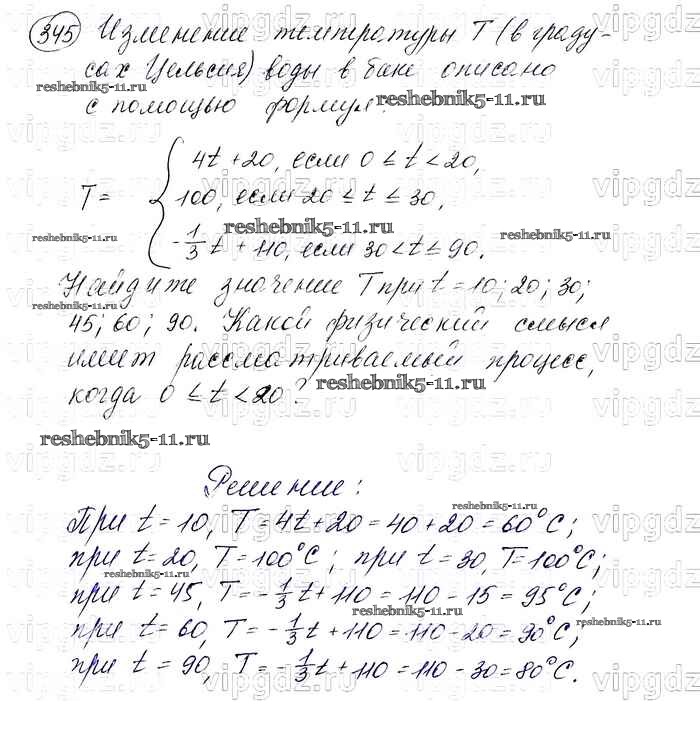 345 Изменение температуры T (в граду-
сах Цельсия) воды в баке описано
с помощью формул:
T = { 4t + 20, если 0 ≤ t < 20,
100, если 20 ≤ t ≤ 30,
-1/3 t + 110, если 30 < t ≤ 90.
Найдите значение T при t = 10; 20; 30;
45; 60; 90. Какой физический смысл
имеет рассматриваемый процесс,
когда 0 ≤ t < 20?
Решение:
При t = 10, T = 4t + 20 = 40 + 20 = 60°C;
при t = 20, T = 100°C; при t = 30, T = 100°C;
при t = 45, T = -1/3 t + 110 = 110 - 15 = 95°C;
при t = 60, T = -1/3 t + 110 = 110 - 20 = 90°C;
при t = 90, T = -1/3 t + 110 = 110 - 30 = 80°C.
reshebnik5-11.ru
vipgdz.ru